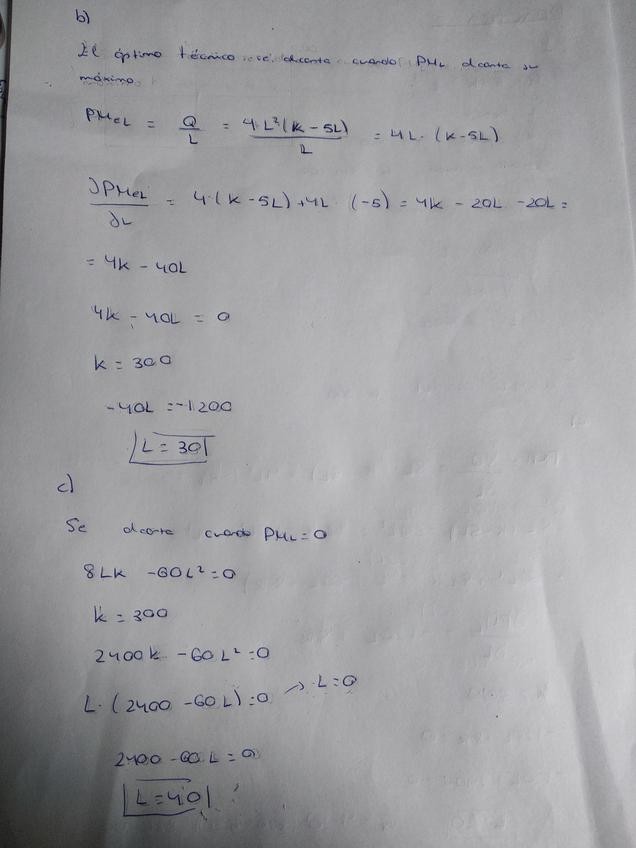 b)
El óptimo técnico se alcanza cuando PML alcanza su
máximo.
PMeL = Q/L = 4·L²(k – 5L)/L = 4L·(k–5L)
∂PMeL/∂L = 4·(k – 5L) + 4L·(-5) = 4k – 20L – 20L =
= 4k – 40L
4k – 40L = 0
k = 300
-40L = -1200
L = 30
c)
Se alcanza cuando PML = 0
8Lk – 60L² = 0
k = 300
2400k – 60L² = 0
L·(2400 – 60L) = 0 → L = 0
2400 – 60L = 0
L = 40